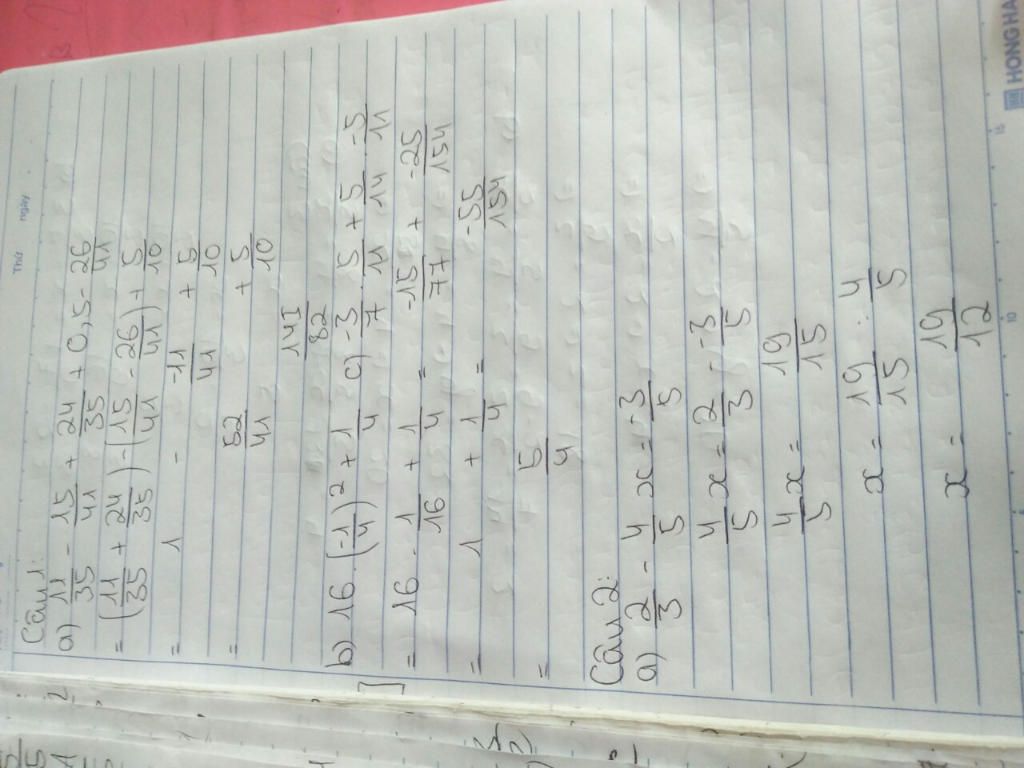 Thứ Ngày
Câu 1:
a) 11/35 - 15/41 + 24/35 + 0,5 - 26/41
= (11/35 + 24/35) - (15/41 - 26/41) + 5/10
= 1 - -11/41 + 5/10
= 52/41 + 5/10
141/82
b) 16 . (-1/4)² + 1/4 c) -3/7 . 5/11 + 5/14 . -5/11
= 16 . 1/16 + 1/4 = -15/77 + -25/154
= 1 + 1/4 = -55/154
= 5/4
Câu 2:
a) 2/3 - 4/5 x = -3/5
4/5 x = 2/3 - -3/5
4/5 x = 19/15
x = 19/15 : 4/5
x = 19/12
HONG HA